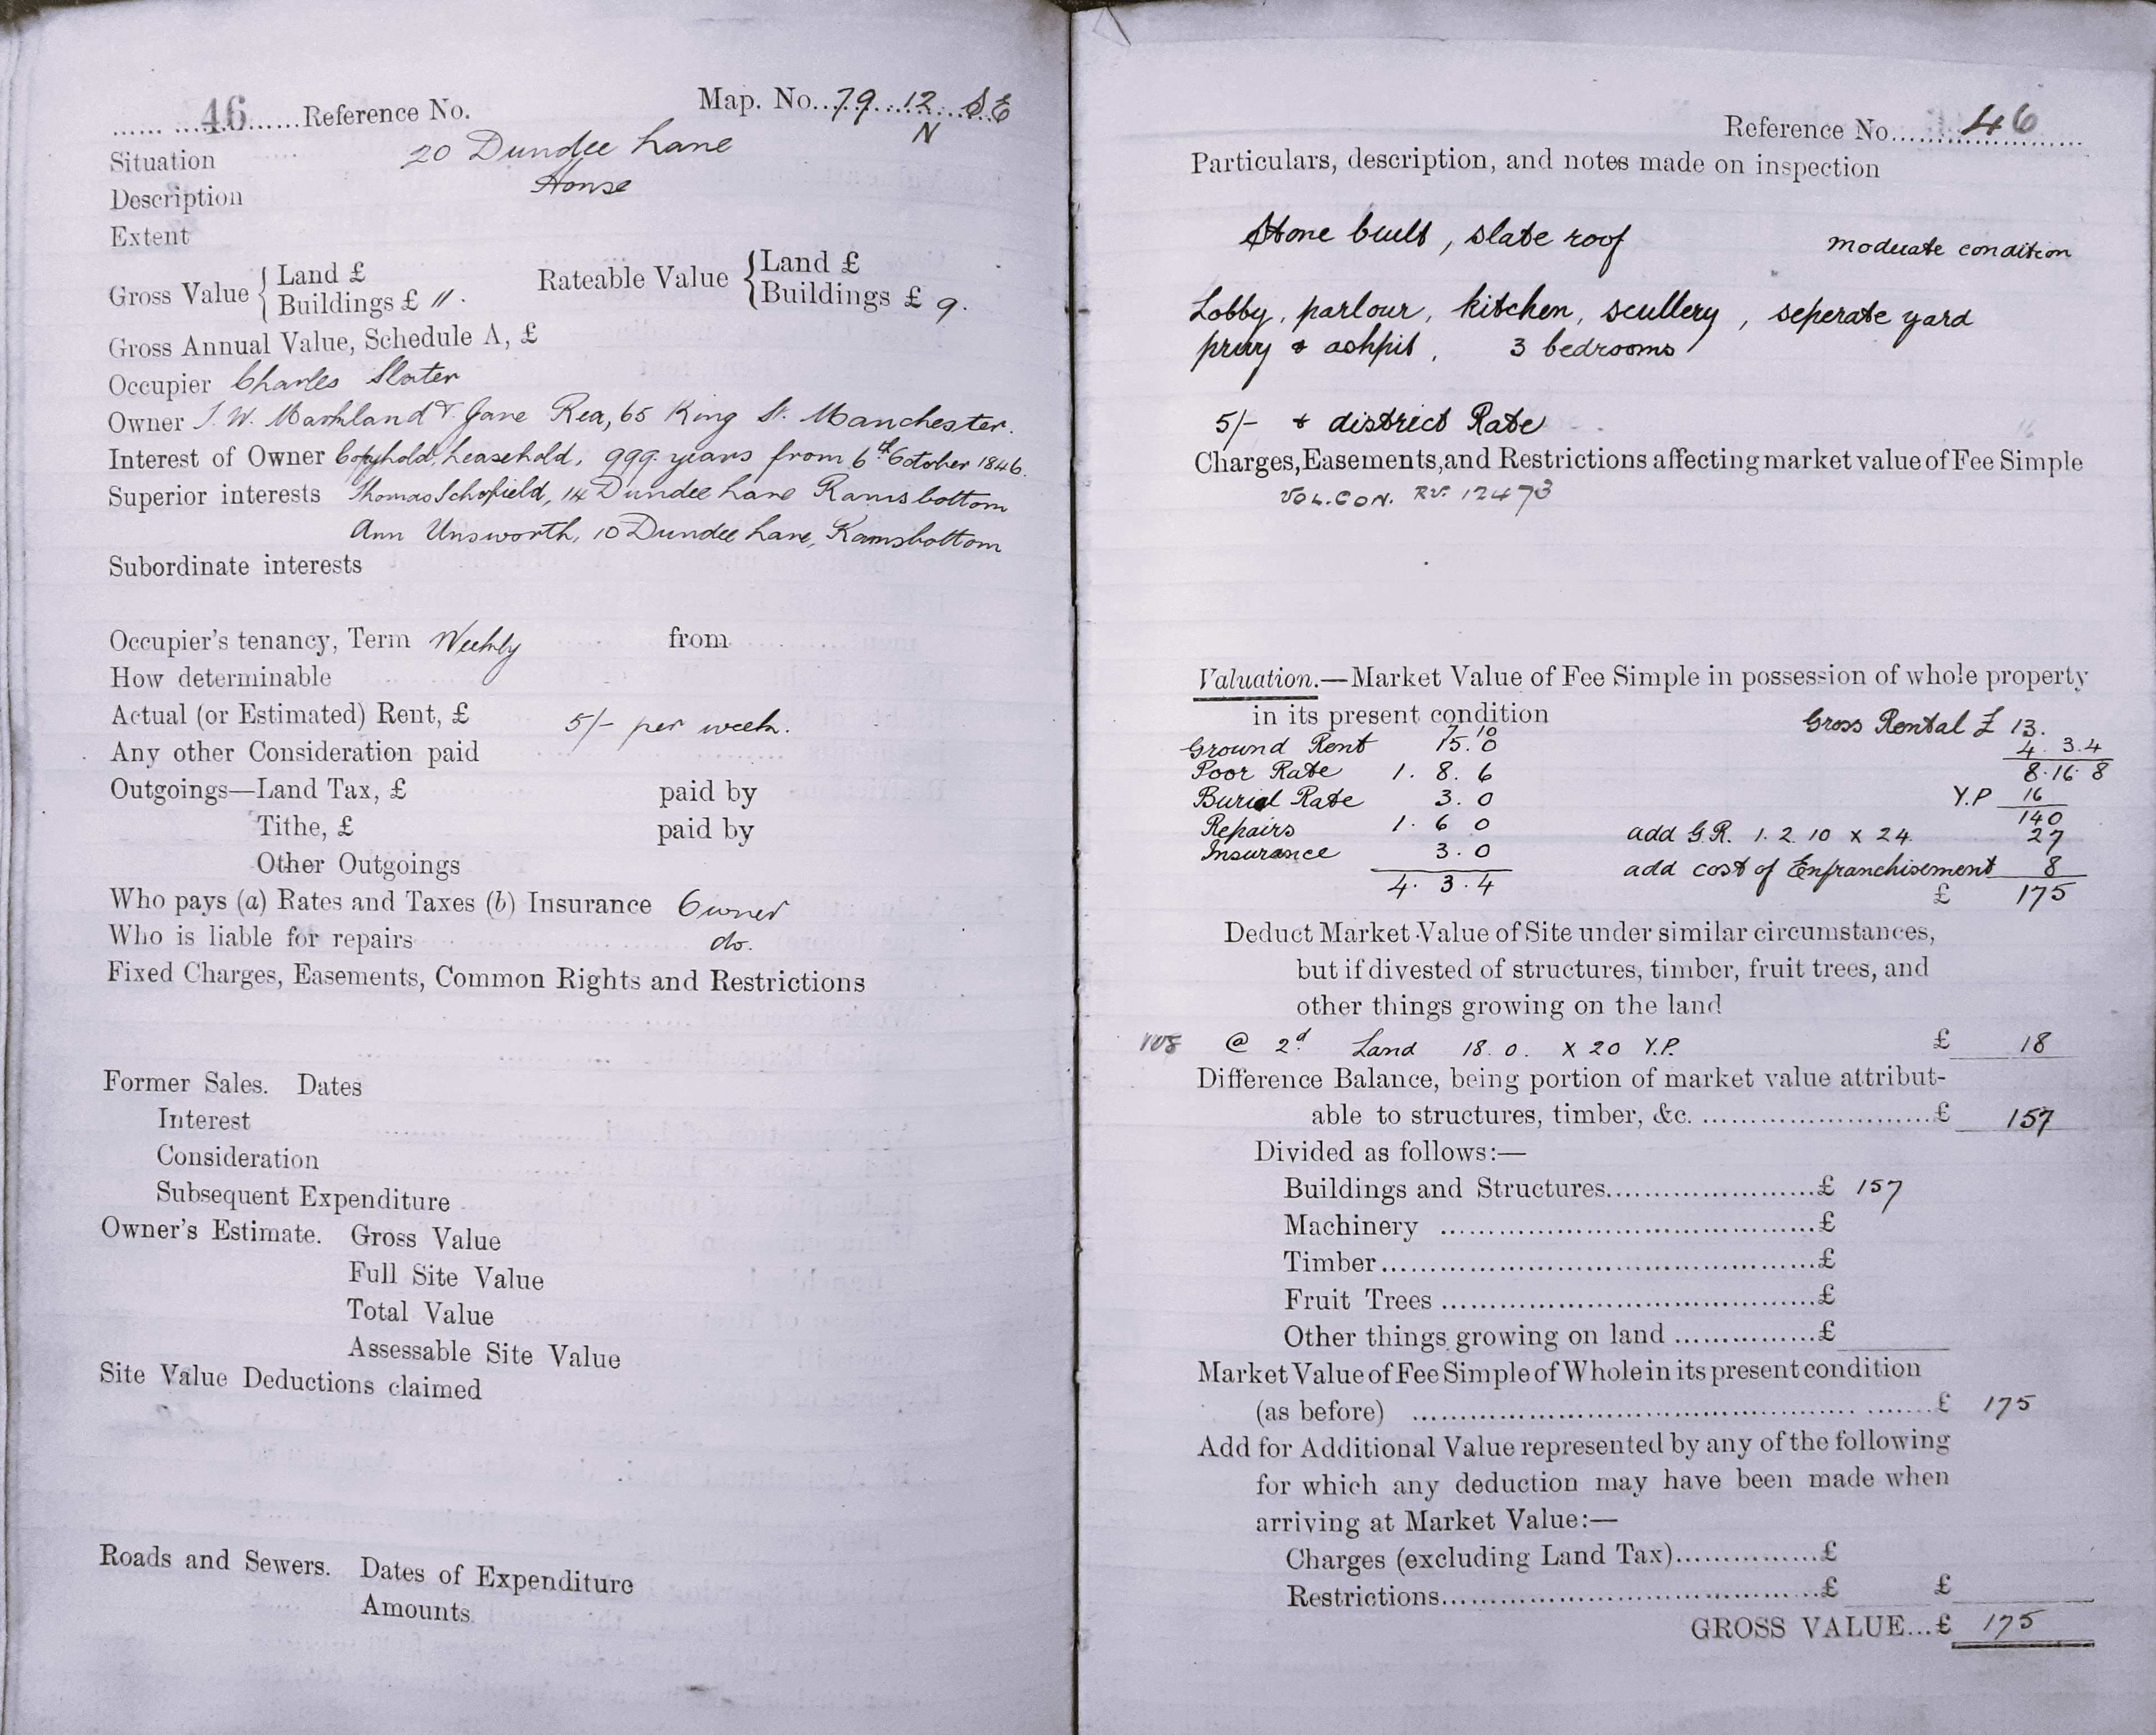 46 Reference No.
Map. No. 79 12 S E
N
Situation 20 Dundee Lane
Description House
Extent
Gross Value { Land £
Buildings £ 11.
Rateable Value { Land £
Buildings £ 9.
Gross Annual Value, Schedule A, £
Occupier Charles Slater
Owner J. W. Markland & Jane Rea, 65 King St. Manchester.
Interest of Owner Copyhold, leasehold, 999 years from 6th October 1846.
Superior interests Thomas Schofield, 14 Dundee Lane Ramsbottom
Ann Unsworth, 10 Dundee Lane, Ramsbottom
Subordinate interests
Occupier's tenancy, Term Weekly from
How determinable
Actual (or Estimated) Rent, £ 5/- per week.
Any other Consideration paid
Outgoings—Land Tax, £ paid by
Tithe, £ paid by
Other Outgoings
Who pays (a) Rates and Taxes (b) Insurance Owner
Who is liable for repairs do.
Fixed Charges, Easements, Common Rights and Restrictions
Former Sales. Dates
Interest
Consideration
Subsequent Expenditure
Owner's Estimate. Gross Value
Full Site Value
Total Value
Assessable Site Value
Site Value Deductions claimed
Roads and Sewers. Dates of Expenditure
Amounts
Reference No. 46
Particulars, description, and notes made on inspection
Stone built, slate roof moderate condition
Lobby, parlour, kitchen, scullery, seperate yard
privy & ashpit, 3 bedrooms
5/- & district Rate
Charges, Easements, and Restrictions affecting market value of Fee Simple
VOL. CON. RV. 12473
Valuation.—Market Value of Fee Simple in possession of whole property
in its present condition Gross Rental £ 13.
7 10
Ground Rent 15. 0 4. 3. 4
Poor Rate 1. 8. 6 8. 16. 8
Burial Rate 3. 0 Y.P 16
Repairs 1. 6 0 140
add G.R. 1. 2. 10 x 24 27
Insurance 3. 0 add cost of Enfranchisement 8
4. 3. 4 £ 175
Deduct Market Value of Site under similar circumstances,
but if divested of structures, timber, fruit trees, and
other things growing on the land
108 @ 2d Land 18. 0. X 20 Y.P. £ 18
Difference Balance, being portion of market value attribut-
able to structures, timber, &c. £ 157
Divided as follows:—
Buildings and Structures £ 157
Machinery £
Timber £
Fruit Trees £
Other things growing on land £
Market Value of Fee Simple of Whole in its present condition
(as before) £ 175
Add for Additional Value represented by any of the following
for which any deduction may have been made when
arriving at Market Value:—
Charges (excluding Land Tax) £
Restrictions £ £
GROSS VALUE...£ 175